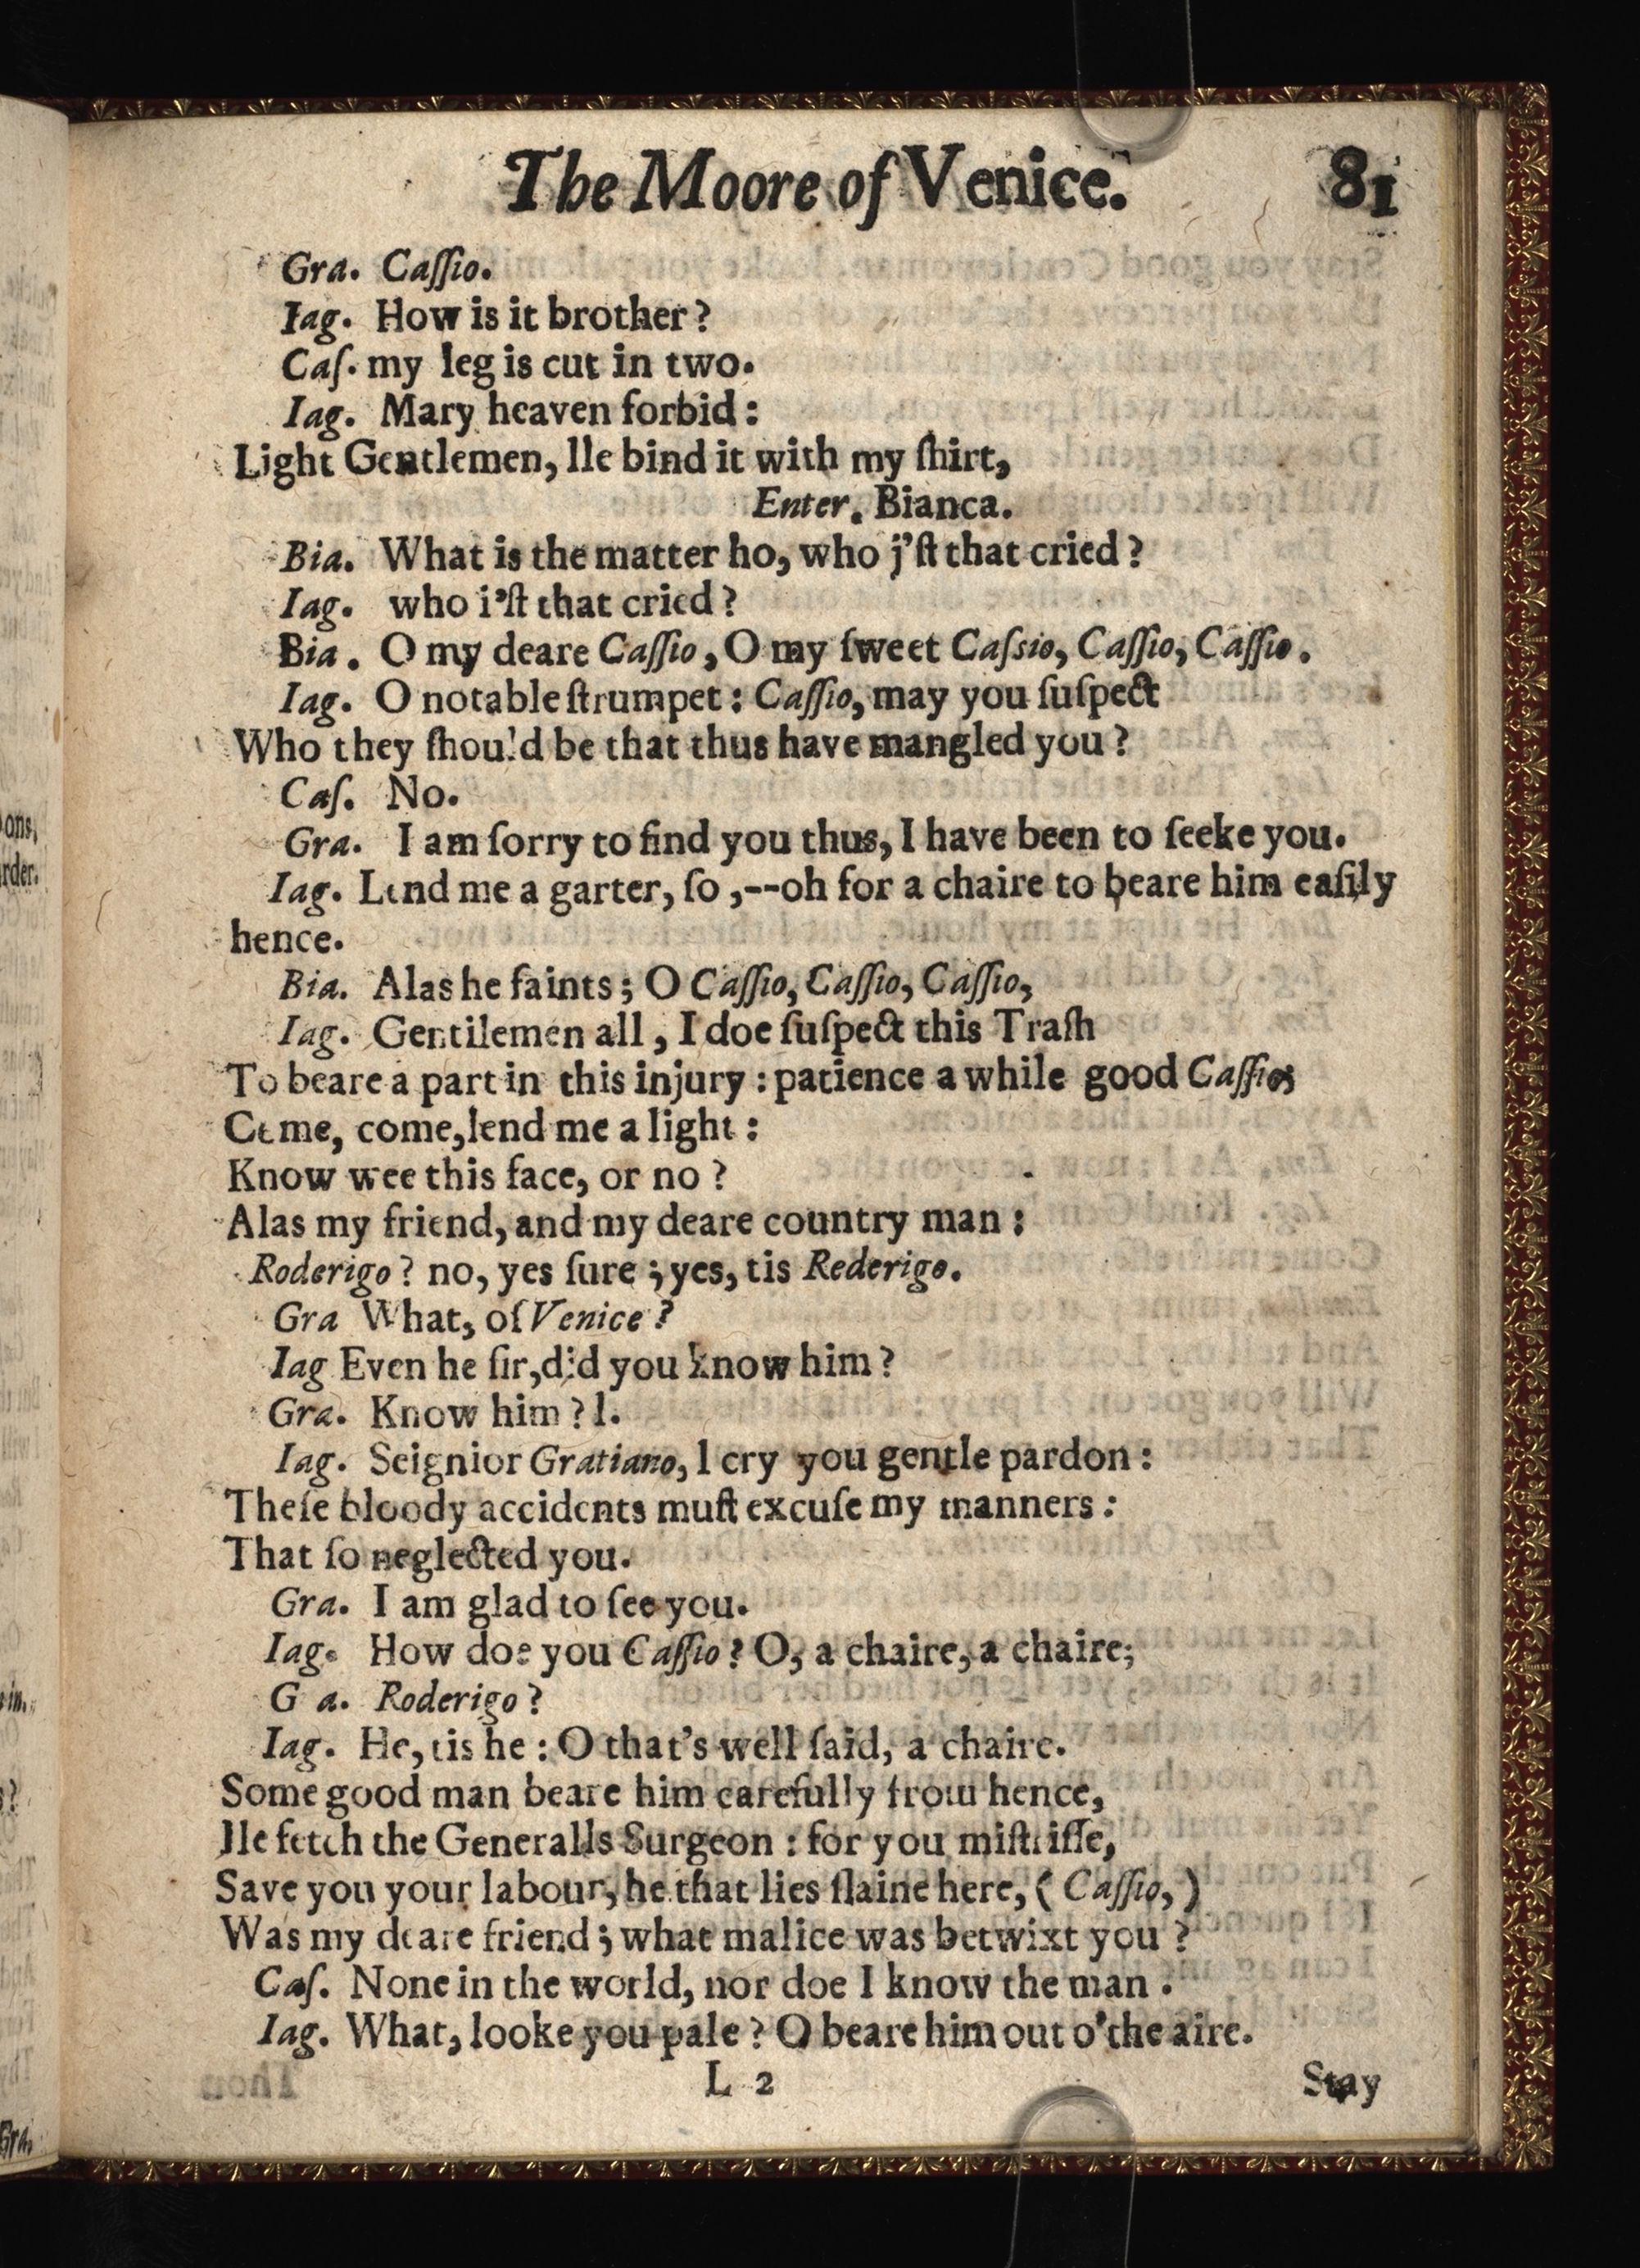 The Moore of Venice. 81
Gra. Caſſio.
Iag. How is it brother?
Caſ. my leg is cut in two.
Iag. Mary heaven forbid:
Light Gentlemen, Ile bind it with my ſhirt,
Enter. Bianca.
Bia. What is the matter ho, who j'ſt that cried?
Iag. who i'ſt that cried?
Bia. O my deare Caſſio, O my ſweet Caſsio, Caſſio, Caſſio.
Iag. O notable ſtrumpet: Caſſio, may you ſuſpect
Who they ſhould be that thus have mangled you?
Caſ. No.
Gra. I am ſorry to find you thus, I have been to ſeeke you.
Iag. Lend me a garter, ſo,--oh for a chaire to beare him eaſily
hence.
Bia. Alas he faints; O Caſſio, Caſſio, Caſſio,
Iag. Gentilemen all, I doe ſuſpect this Traſh
To beare a part in this injury: patience a while good Caſſio;
Come, come, lend me a light:
Know wee this face, or no?
Alas my friend, and my deare country man:
Roderigo? no, yes ſure; yes, tis Rederigo.
Gra What, of Venice?
Iag Even he ſir, did you know him?
Gra. Know him? I.
Iag. Seignior Gratiano, I cry you gentle pardon:
Theſe bloody accidents muſt excuſe my manners:
That ſo neglected you.
Gra. I am glad to ſee you.
Iag. How doe you Caſſio? O, a chaire, a chaire;
G a. Roderigo?
Iag. He, tis he: O that's well ſaid, a chaire.
Some good man beare him carefully from hence,
Ile fetch the Generalls Surgeon: for you miſtriſſe,
Save you your labour, he that lies ſlaine here, (Caſſio,)
Was my deare friend; what malice was betwixt you?
Caſ. None in the world, nor doe I know the man.
Iag. What, looke you pale? O beare him out o'the aire.
L 2 Stay
ons,
rder.
Gra,